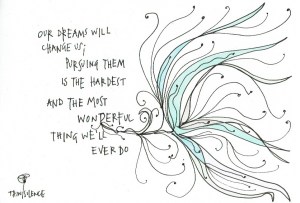 OUR DREAMS WILL
CHANGE US;
PURSUING THEM
IS THE HARDEST
AND THE MOST
WONDERFUL
THING WE'LL
EVER DO